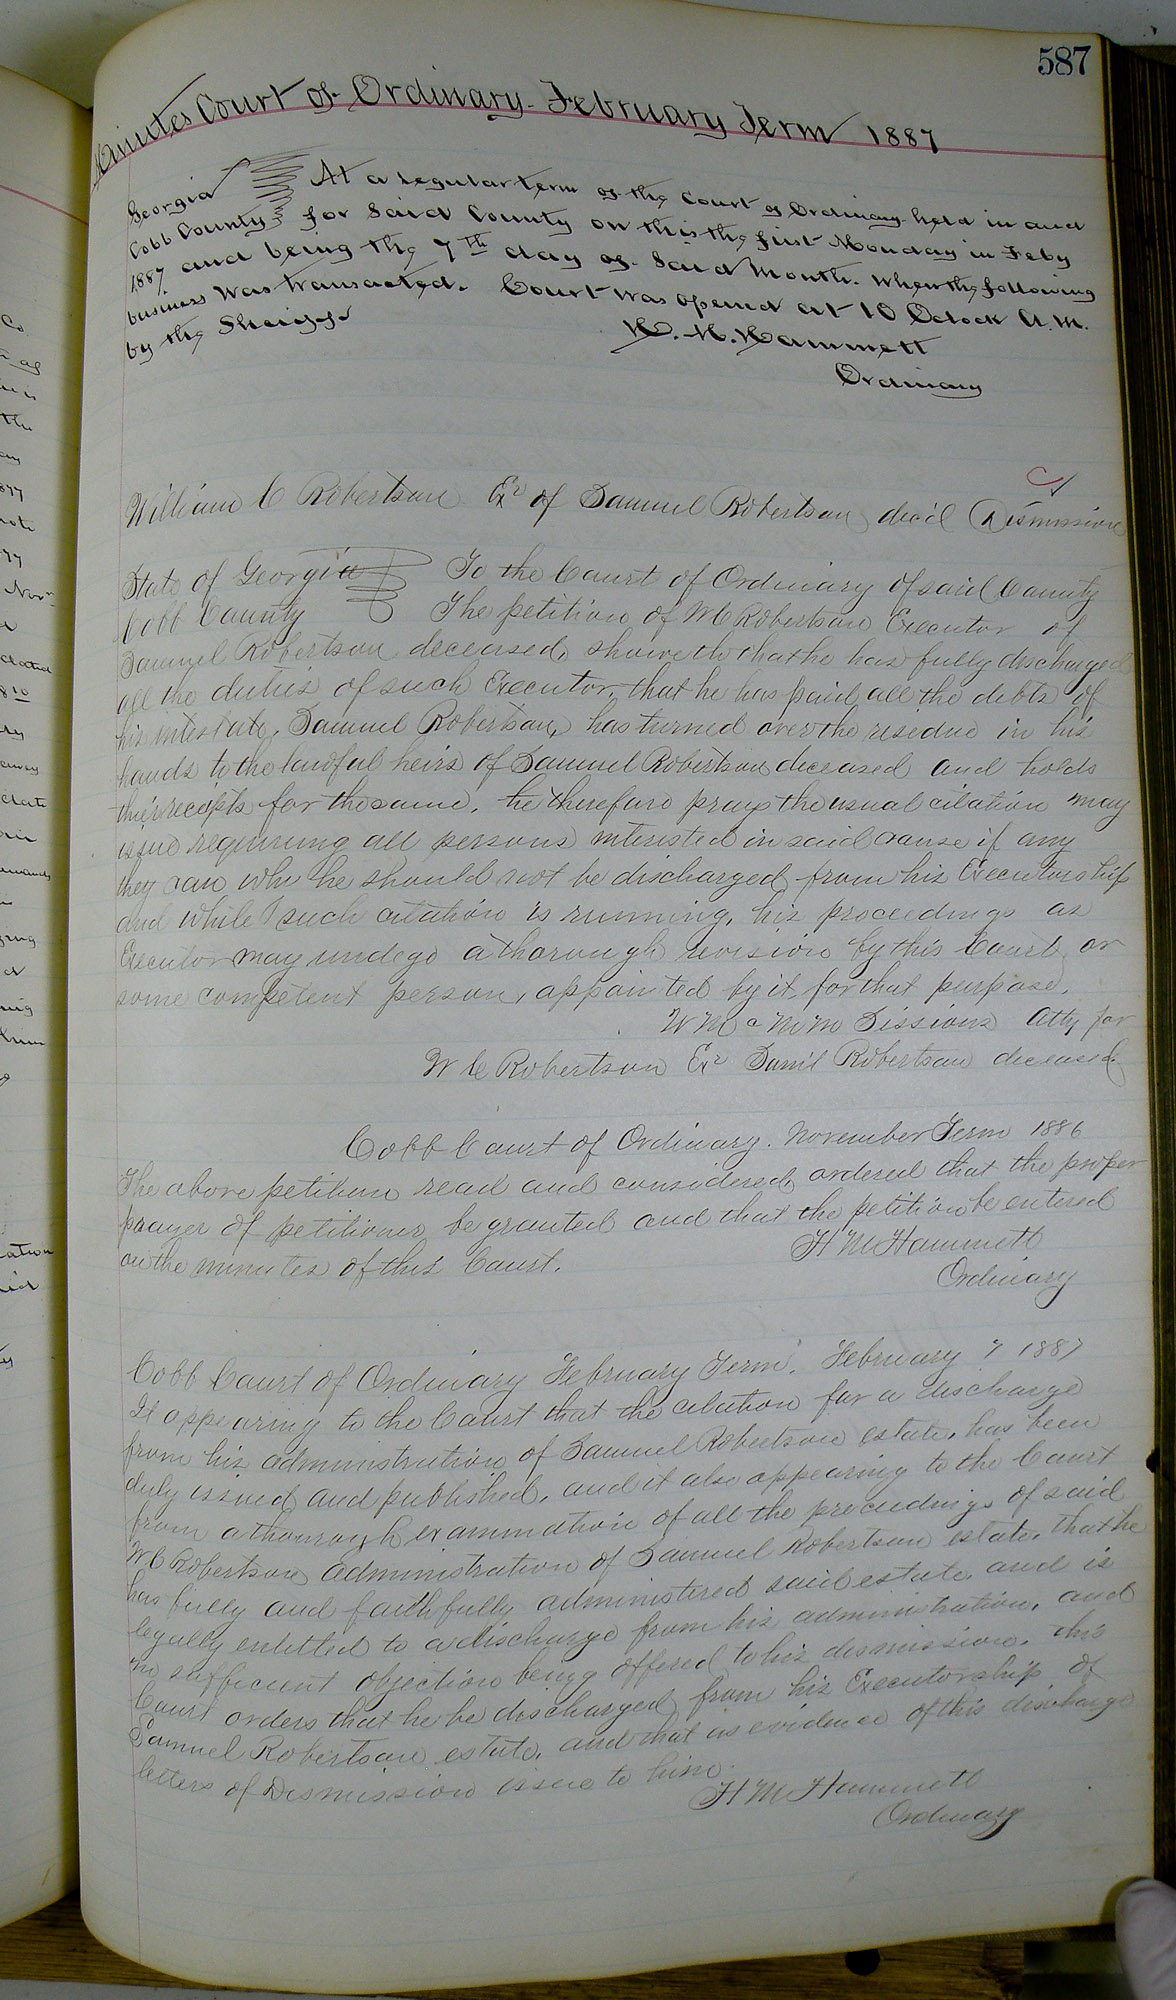 587
Minutes Court of Ordinary February Term 1887
Georgia At a regular term of the Court of Ordinary held in and
Cobb County for said County on this the first Monday in Feby
1887 and being the 7th day of said month. When the following
business was transacted. Court was opened at 10 Oclock A.M.
by the Sheriff
H. M. Hammett
Ordinary
William C Robertson Exr of Samuel Robertson dec'd Dismission
State of Georgia To the Court of Ordinary of said County
Cobb County The petition of W C Robertson Executor of
Samuel Robertson deceased, showeth that he has fully discharged
all the duties of such Executor, that he has paid all the debts of
his intestate, Samuel Robertson, has turned over the residue in his
hands to the lawful heirs of Samuel Robertson deceased and holds
their receipts for the same, he therefore prays the usual citation may
issue requiring all persons interested in said cause if any
they can why he should not be discharged from his Executorship
and while such citation is running, his proceedings as
Executor may undego a thorough revision by this Court, or
some competent person, appointed by it, for that purpose.
W M & M M Sissions Atty for
W C Robertson Exr Saml Robertson deceased
Cobb Court of Ordinary. November Term 1886
The above petition read and considered, ordered that the proper
prayer of petitioner be granted and that the petition be entered
on the minutes of this Court.
H M Hammett
Ordinary
Cobb Court of Ordinary February Term. February 7 1887
It appearing to the Court that the citation for a discharge
from his administration of Samuel Robertson estate, has been
duly issued and published, and it also appearing to the Court
from a thorough examination of all the proceedings of said
W C Robertson, administration of Samuel Robertson estate, that he
has fully and faithfully administered said estate and is
legally entitled to a discharge from his administration, and
no sufficient objection being offered to his dismission. this
Court orders that he be discharged from his Executorship of
Samuel Robertson estate, and that as evidence of this discharge
letters of Dismission issue to him.
H M Hammett
Ordinary